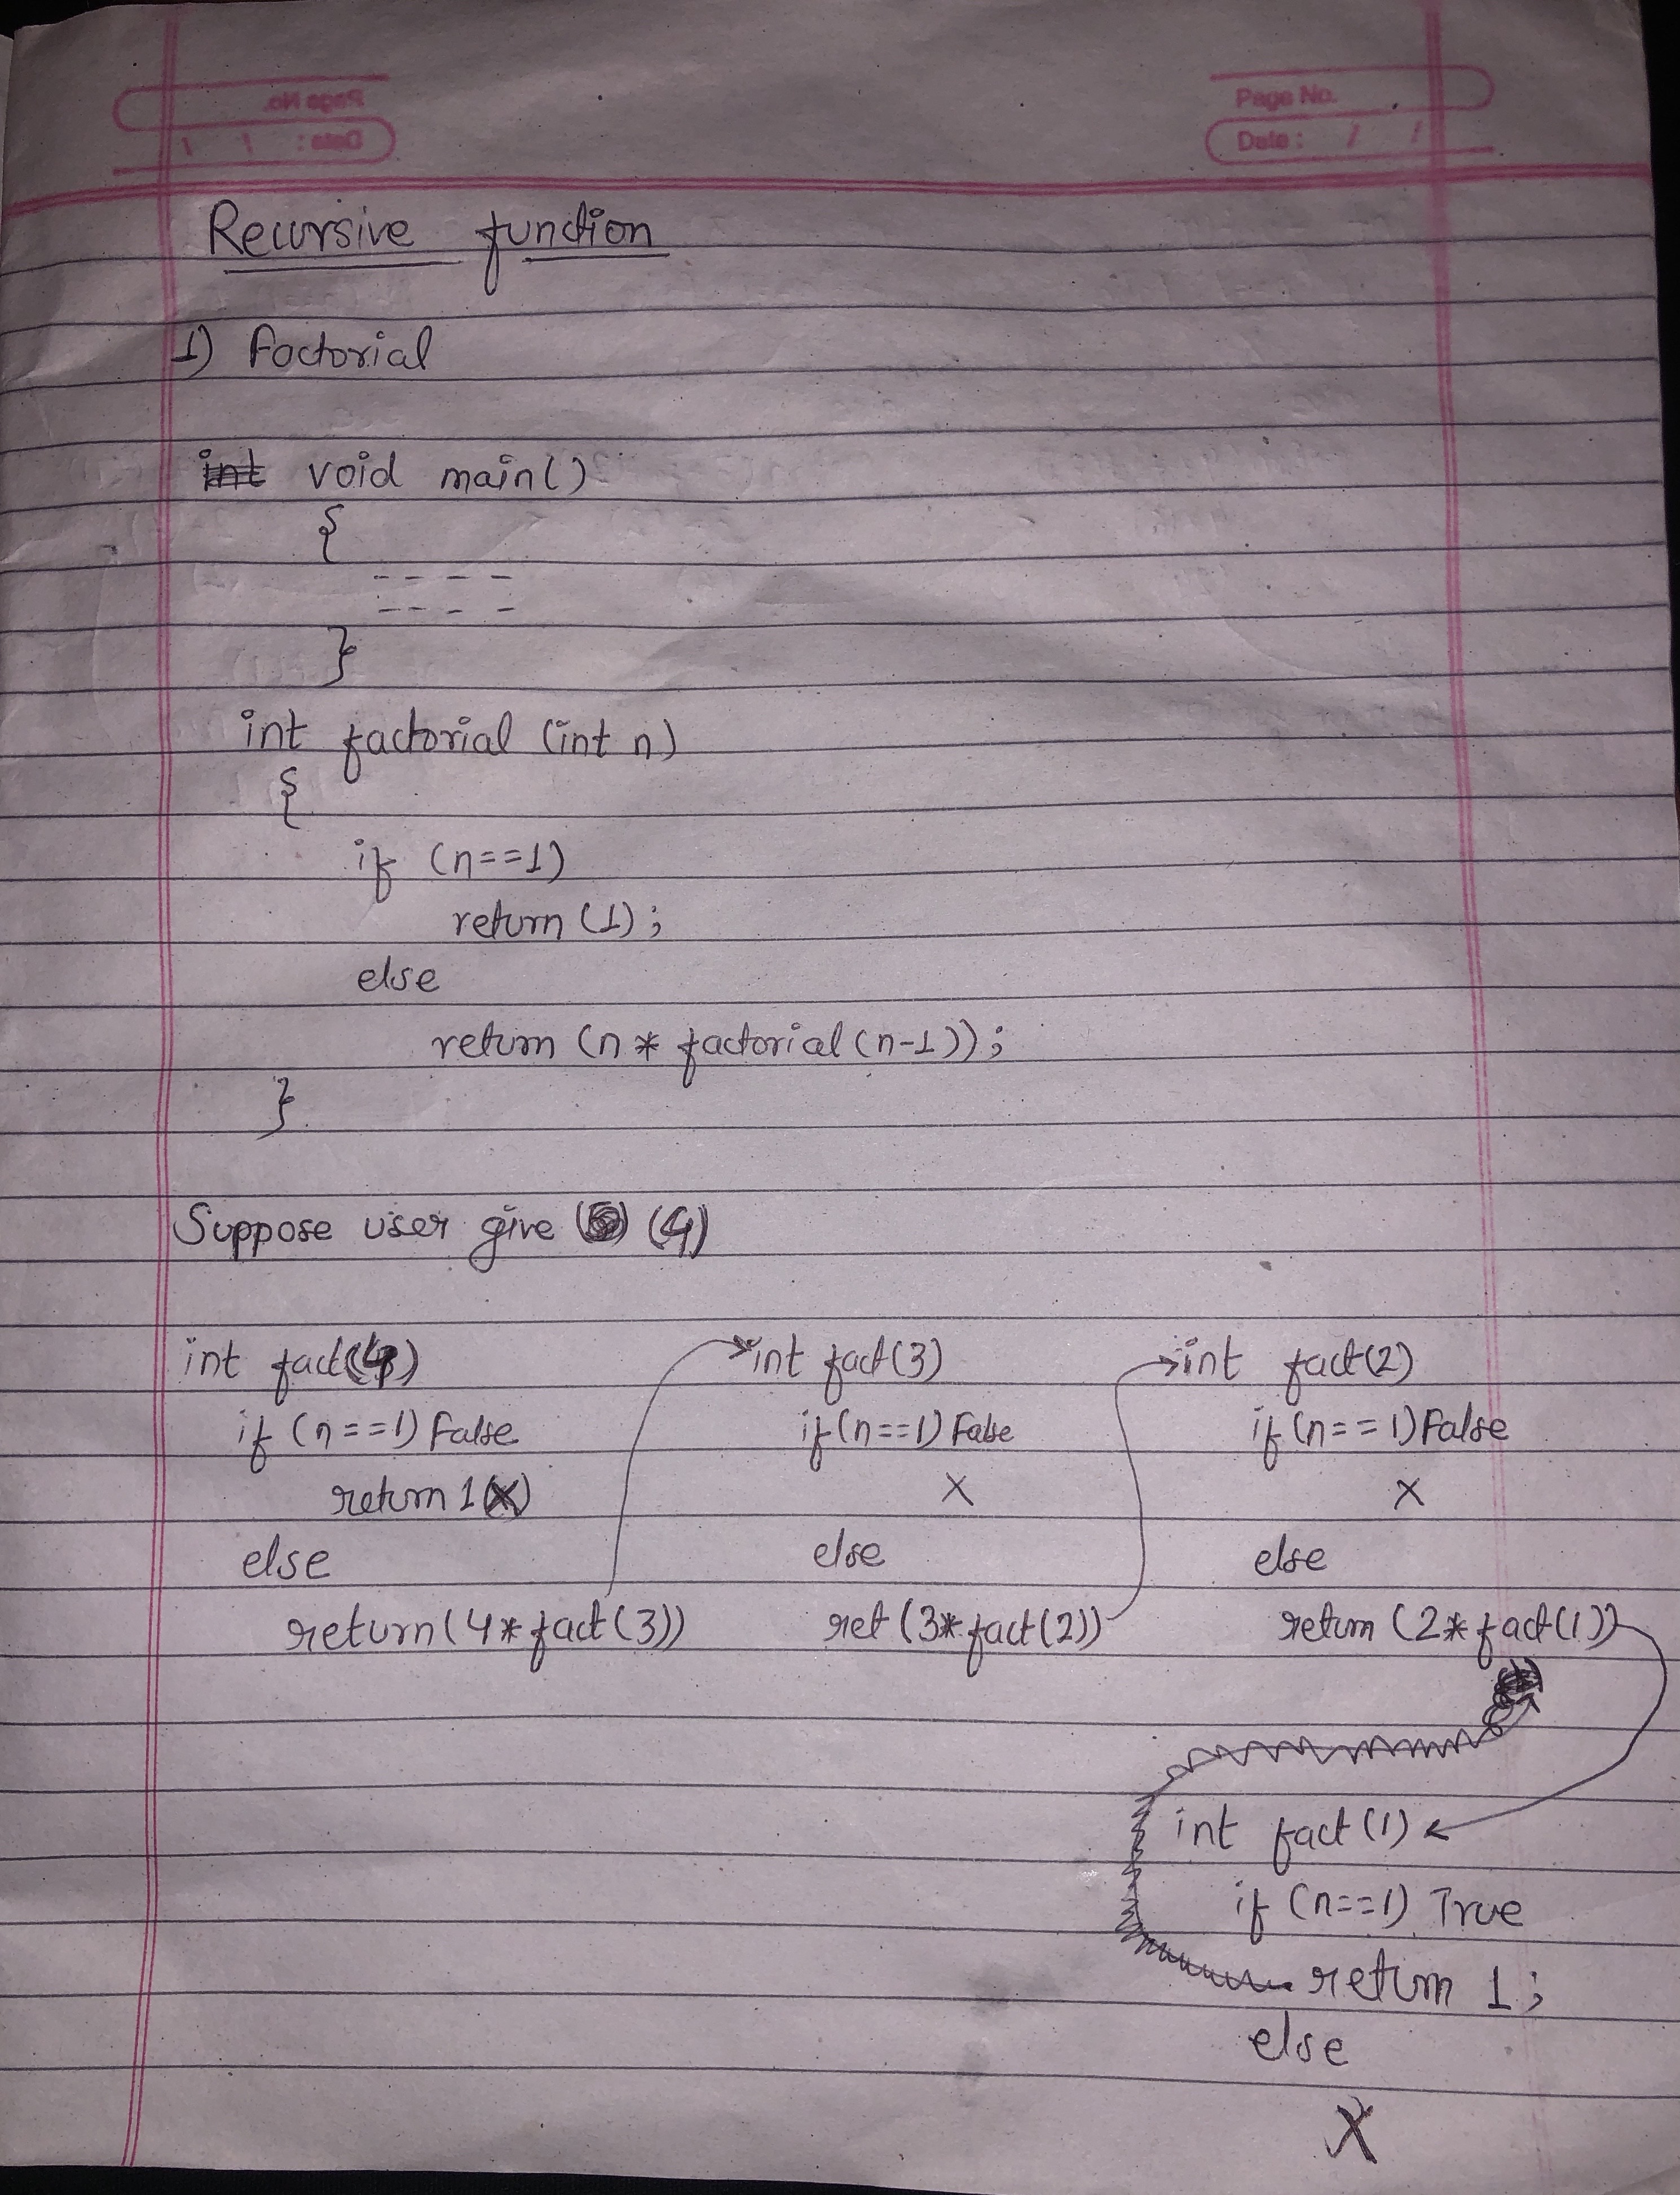 Page No.
Date : / /
Page No.
Date : / /
Recursive function
1) Factorial
int void main()
{
- - - -
- - - -
}
int factorial (int n)
{
if (n==1)
return (1);
else
return (n * factorial (n-1));
}
Suppose user give (4)
int fact(4)
if (n==1) False
return 1(X)
else
return(4* fact(3))
int fact(3)
if(n==1) False
X
else
ret (3* fact(2))
int fact(2)
if (n==1) False
X
else
return (2* fact(1))
int fact (1)
if (n==1) True
return 1;
else
X